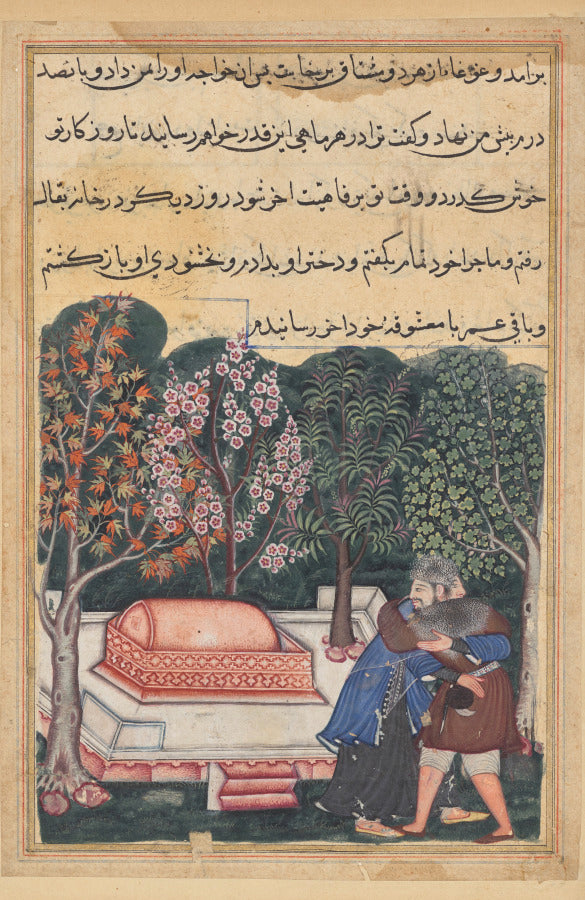 برآمد و غوغا از هر دو مشتاق برخاست پس آن خواجه او را بمن داد و پانصد
درم پیش من نهاد و گفت ترا در هر ماهی این قدر خواهم رسانید تا روزگار تو
خوش گذرد و وقت تو برفاهیت اخر شود روز دیگر در خانه بقال
رفتم و ماجرا خود تمام بگفتم و دختر او بدادم و بخشنودی او باز گشتم
و باقی عمر با معشوقهٔ خود اخر رسانیدم